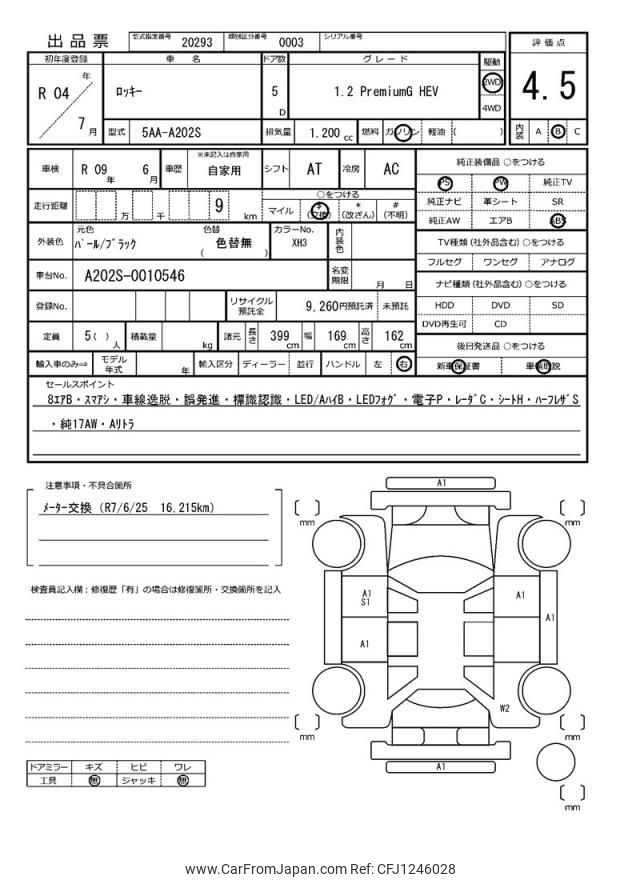 出品票 型式指定番号 20293 類別区分番号 0003 シリアル番号
評価点
4.5
内装 A B C
初年度登録 車名 ドア数 グレード 駆動
R 04 年 7 月 ロッキー 5 D 1.2 PremiumG HEV 2WD 4WD
型式 5AA-A202S 排気量 1,200 cc 燃料 ガソリン 軽油 ( )
車検 R 09 年 6 月 車歴 ※未記入は自家用 自家用 シフト AT 冷房 AC
純正装備品 ○をつける
PS PW 純正TV
純正ナビ 革シート SR
純正AW エアB ABS
走行距離 万 千 9 km ○をつける
マイル $ (交換) * (改ざん) # (不明)
外装色 元色 パール/ブラック 色替 ( 色替無 ) カラーNo. XH3 内装色
TV種類 (社外品含む) ○をつける
フルセグ ワンセグ アナログ
車台No. A202S-0010546 名変期限 月 日
ナビ種類 (社外品含む) ○をつける
HDD DVD SD
DVD再生可 CD
登録No. リサイクル預託金 9,260円預託済 未預託
定員 5( ) 人 積載量 kg 諸元 長さ 399 cm 幅 169 cm 高さ 162 cm
後日発送品 ○をつける
新車保証書 車輌取説
輸入車のみ⇒ モデル年式 年 輸入区分 ディーラー 並行 ハンドル 左 右
セールスポイント
8ｴｱB・ｽﾏｱｼ・車線逸脱・誤発進・標識認識・LED/AﾊｲB・LEDﾌｫｸﾞ・電子P・ﾚｰﾀﾞC・ｼｰﾄH・ﾊｰﾌﾚｻﾞS
・純17AW・Aﾘﾄﾗ
注意事項・不具合箇所
ﾒｰﾀｰ交換 (R7/6/25 16.215km)
検査員記入欄：修復歴「有」の場合は修復箇所・交換箇所を記入
ドアミラー キズ ヒビ ワレ
工具 無 ジャッキ 無
A1
mm
mm
A1
S1
A1
A1
A1
W2
mm
mm
A1
mm
www.CarFromJapan.com Ref: CFJ1246028